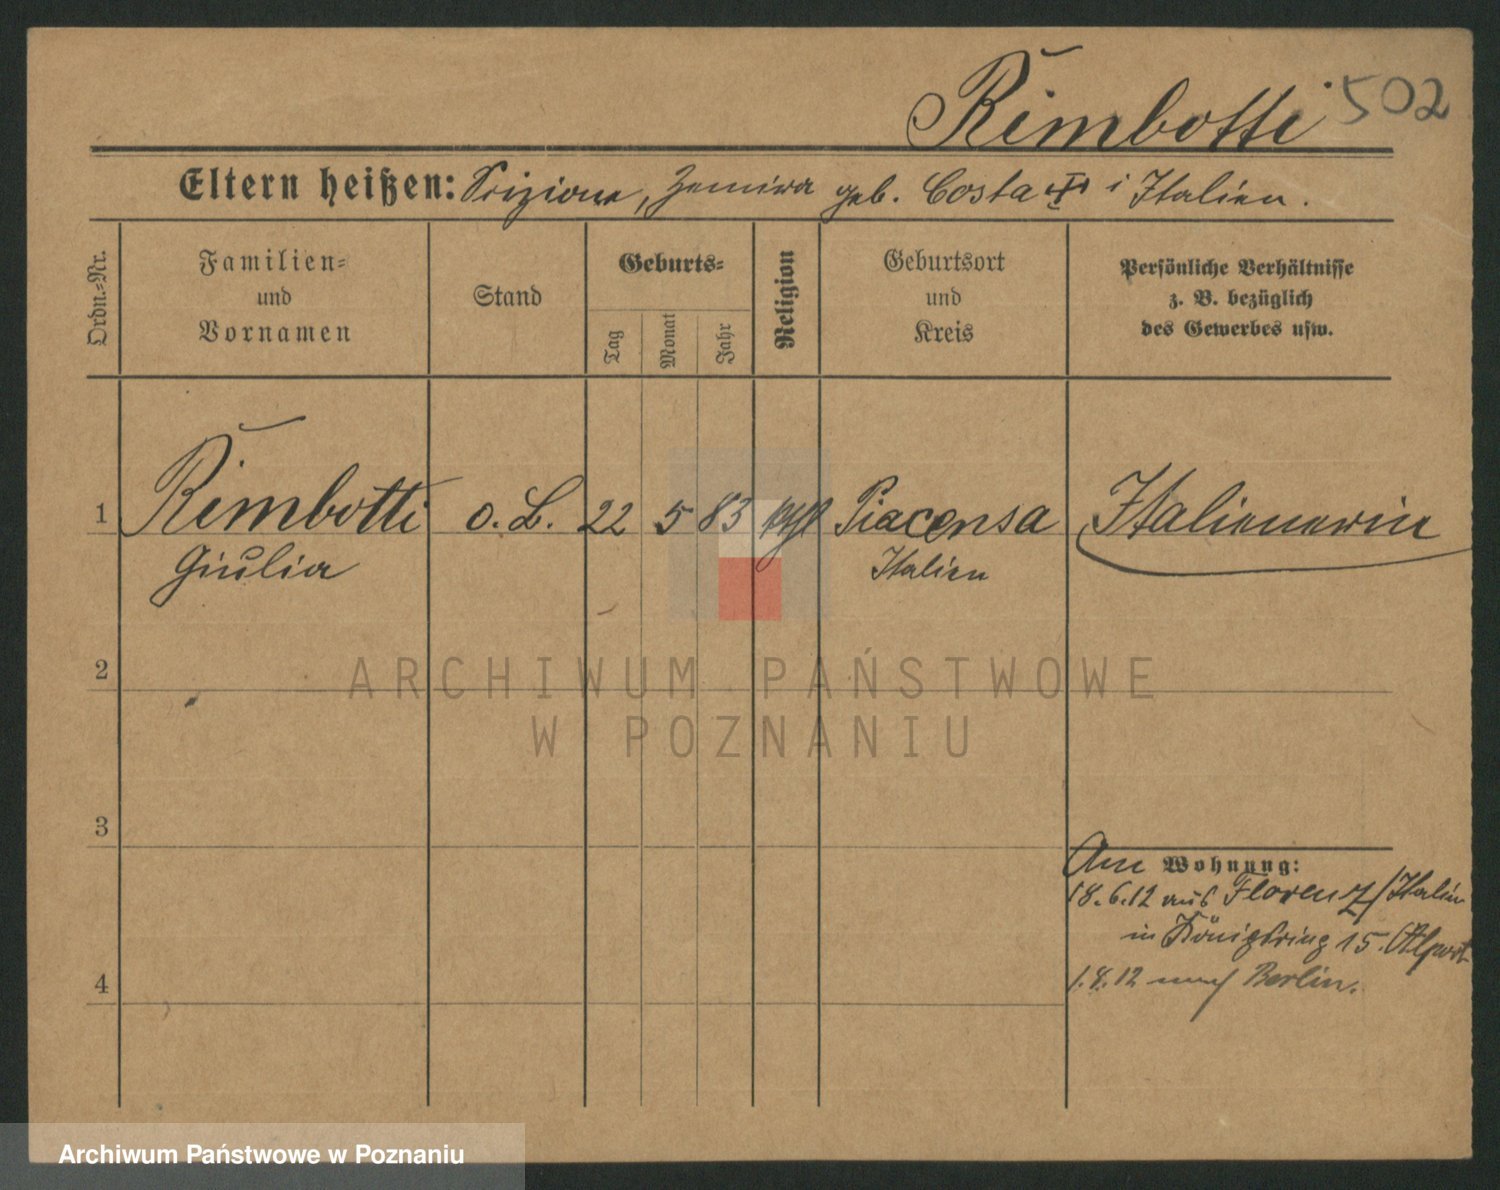 Rimbotti 502
Eltern heißen: Scizione, Zemira geb. Costa i Italien.
Ordn.=Nr.
Familien=
und
Vornamen
Stand
Geburts=
Tag
Monat
Jahr
Religion
Geburtsort
und
Kreis
Persönliche Verhältnisse
z. B. bezüglich
des Gewerbes usw.
1 Rimbotti o. L. 22 5 83 kgl Piacensa Italienerin
Giulia Italien
2
ARCHIWUM PAŃSTWOWE
W POZNANIU
3
Am Wohnung:
18.6.12 aus Florenz/Italien
in Königsring 15.
4
1.8.12 nach Berlin.
Archiwum Państwowe w Poznaniu